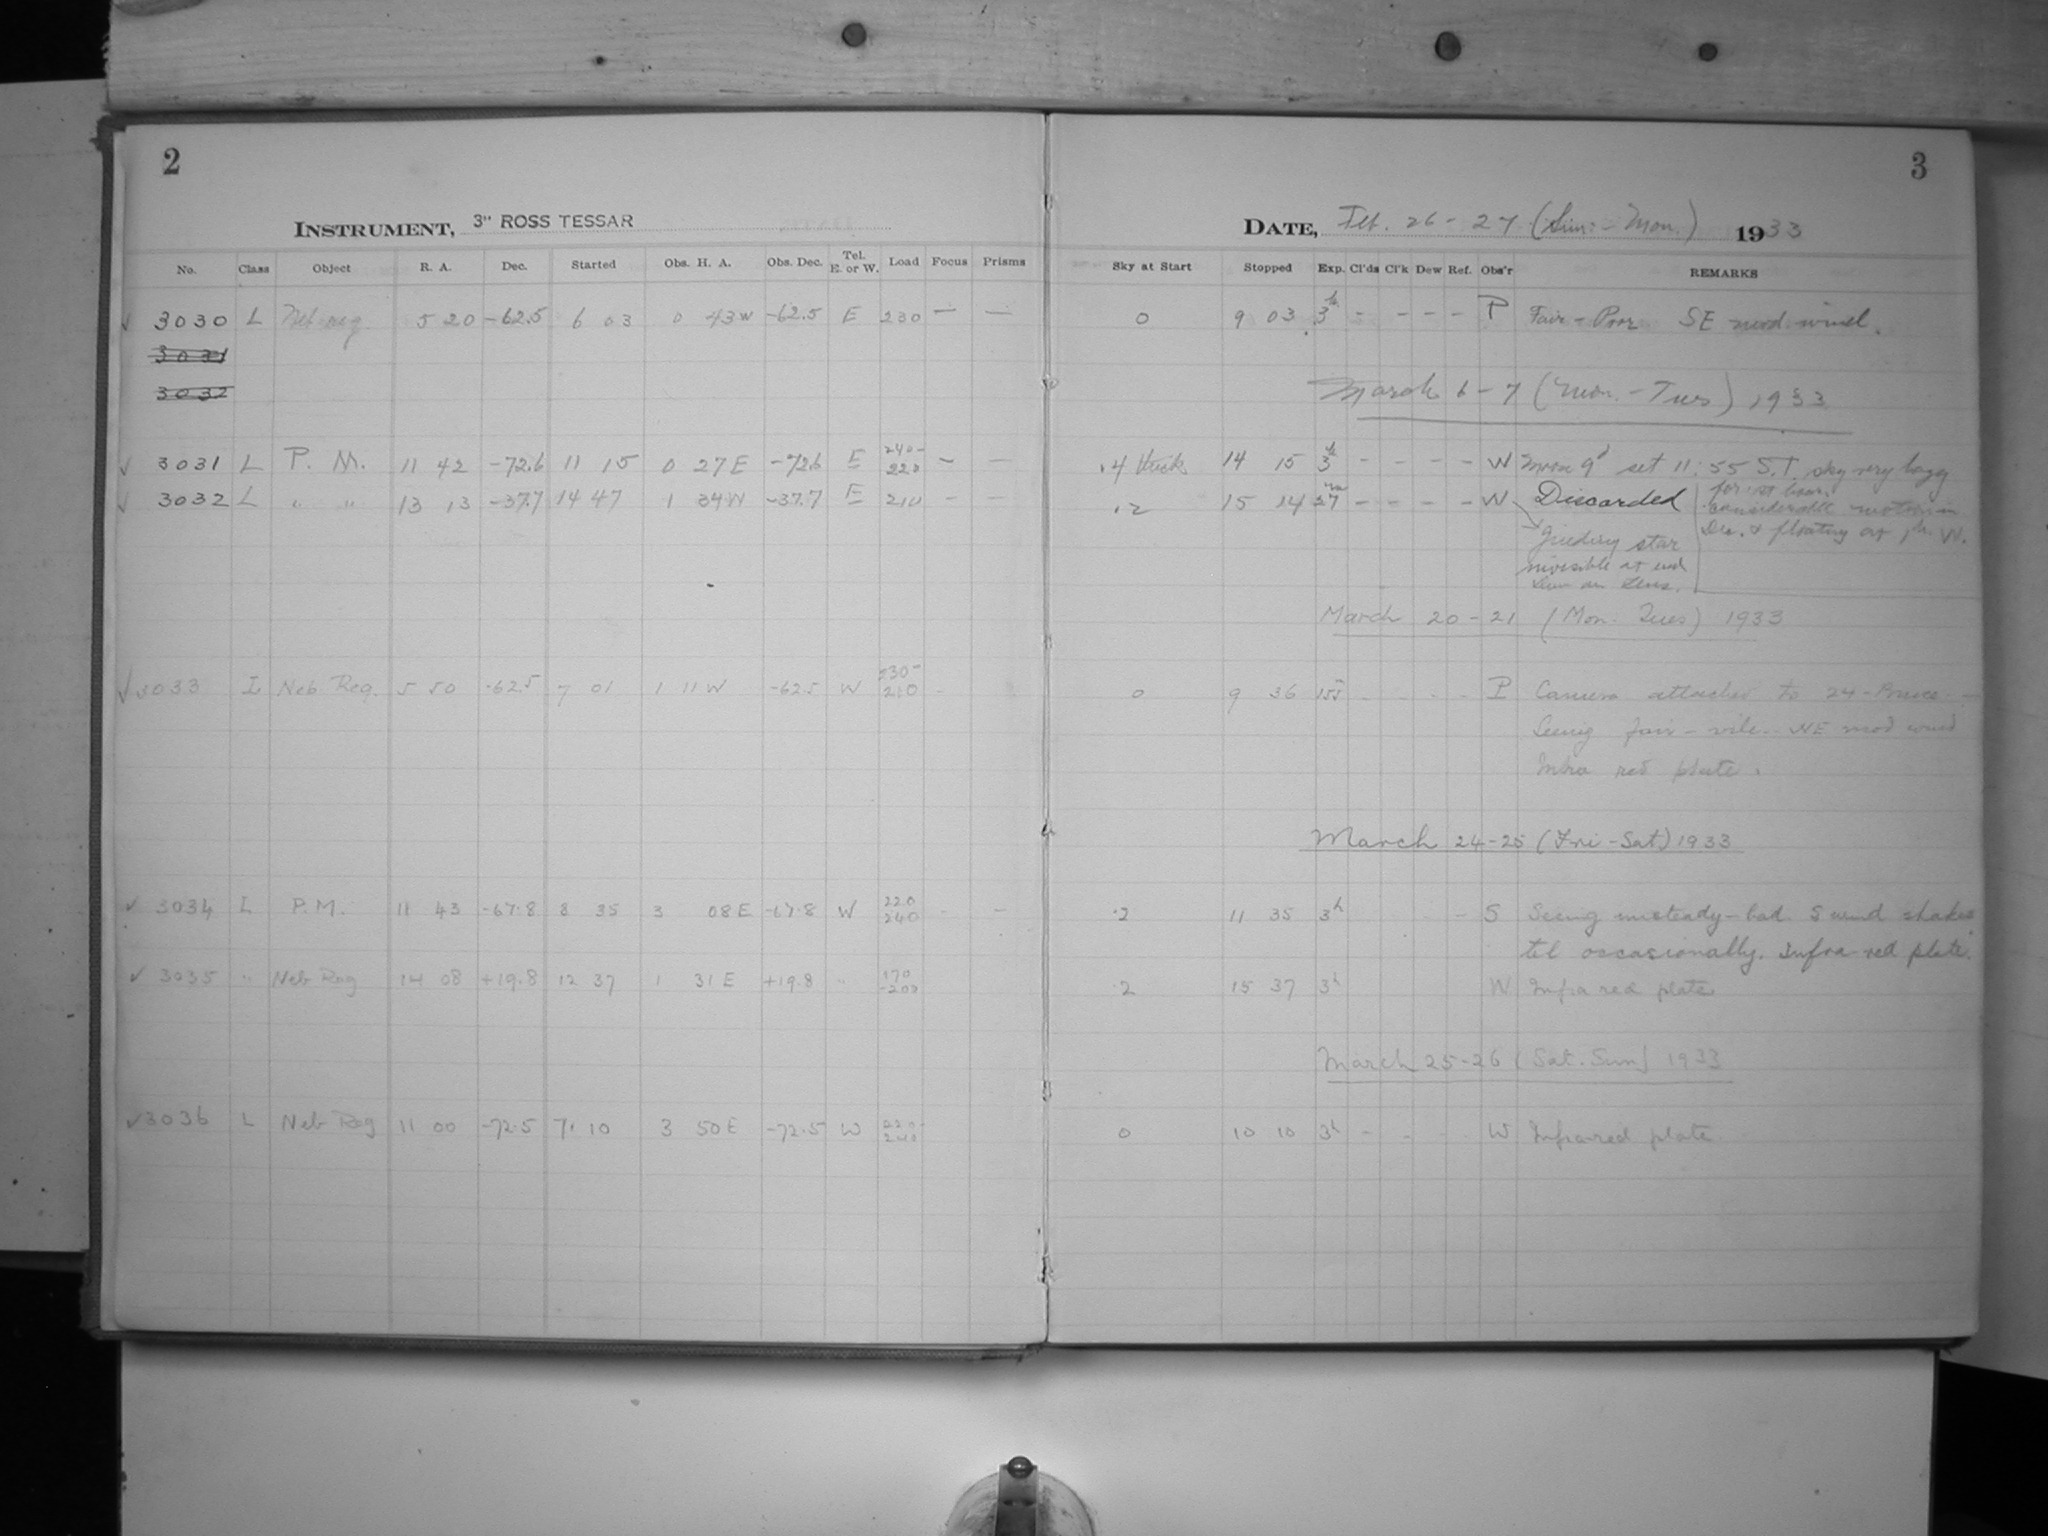 2
INSTRUMENT, 3" ROSS TESSAR
No. Class Object R. A. Dec. Started Obs. H. A. Obs. Dec. Tel. E. or W. Load Focus Prisms
✓ 3030 L Neb reg 5 20 -62.5 6 03 0 43 W -62.5 E 230 — —
3031
3032
✓ 3031 L P. M. 11 42 -72.6 11 15 0 27 E -72.6 E 240- 220 — —
✓ 3032 L " " 13 13 -37.7 14 47 1 34 W -37.7 E 210 - -
✓ 3033 I Neb Reg. 5 50 -62.5 7 01 1 11 W -62.5 W 230- 210 -
✓ 3034 I P.M. 11 43 -67.8 8 35 3 08 E -67.8 W 220 240 - -
✓ 3035 " Neb Reg 14 08 +19.8 12 37 1 31 E +19.8 " 170 -200
✓ 3036 L Neb Reg 11 00 -72.5 7 10 3 50 E -72.5 W 220- 240
3
DATE, Feb. 26 - 27 (Sun. - Mon.) 1933
Sky at Start Stopped Exp. Cl'ds Cl'k Dew Ref. Obs'r REMARKS
0 9 03 3h - - - - P Fair - Poor SE mod. wind.
March 6 - 7 (Mon. - Tues) 1933
.4 thick 14 15 3h - - - - W Moon 9d set 11:55 S.T. sky very hazy
for 1st hour.
.2 15 14 27m - - - - W Discarded
considerable motion in
Dec. & floating at 1h. W.
Guiding star
invisible at end
Dew on Lens.
March 20 - 21 (Mon. Tues) 1933
0 9 36 155 - - - - P Camera attached to 24-Bruce -
Seeing fair - vile. NE mod wind
Infra red plate.
March 24-25 (Fri - Sat) 1933
.2 11 35 3h - S Seeing unsteady - bad. S wind shakes
tel occasionally. Infra-red plate.
.2 15 37 3h W Infra red plate
March 25-26 (Sat. Sun) 1933
0 10 10 3h - - - W Infra-red plate